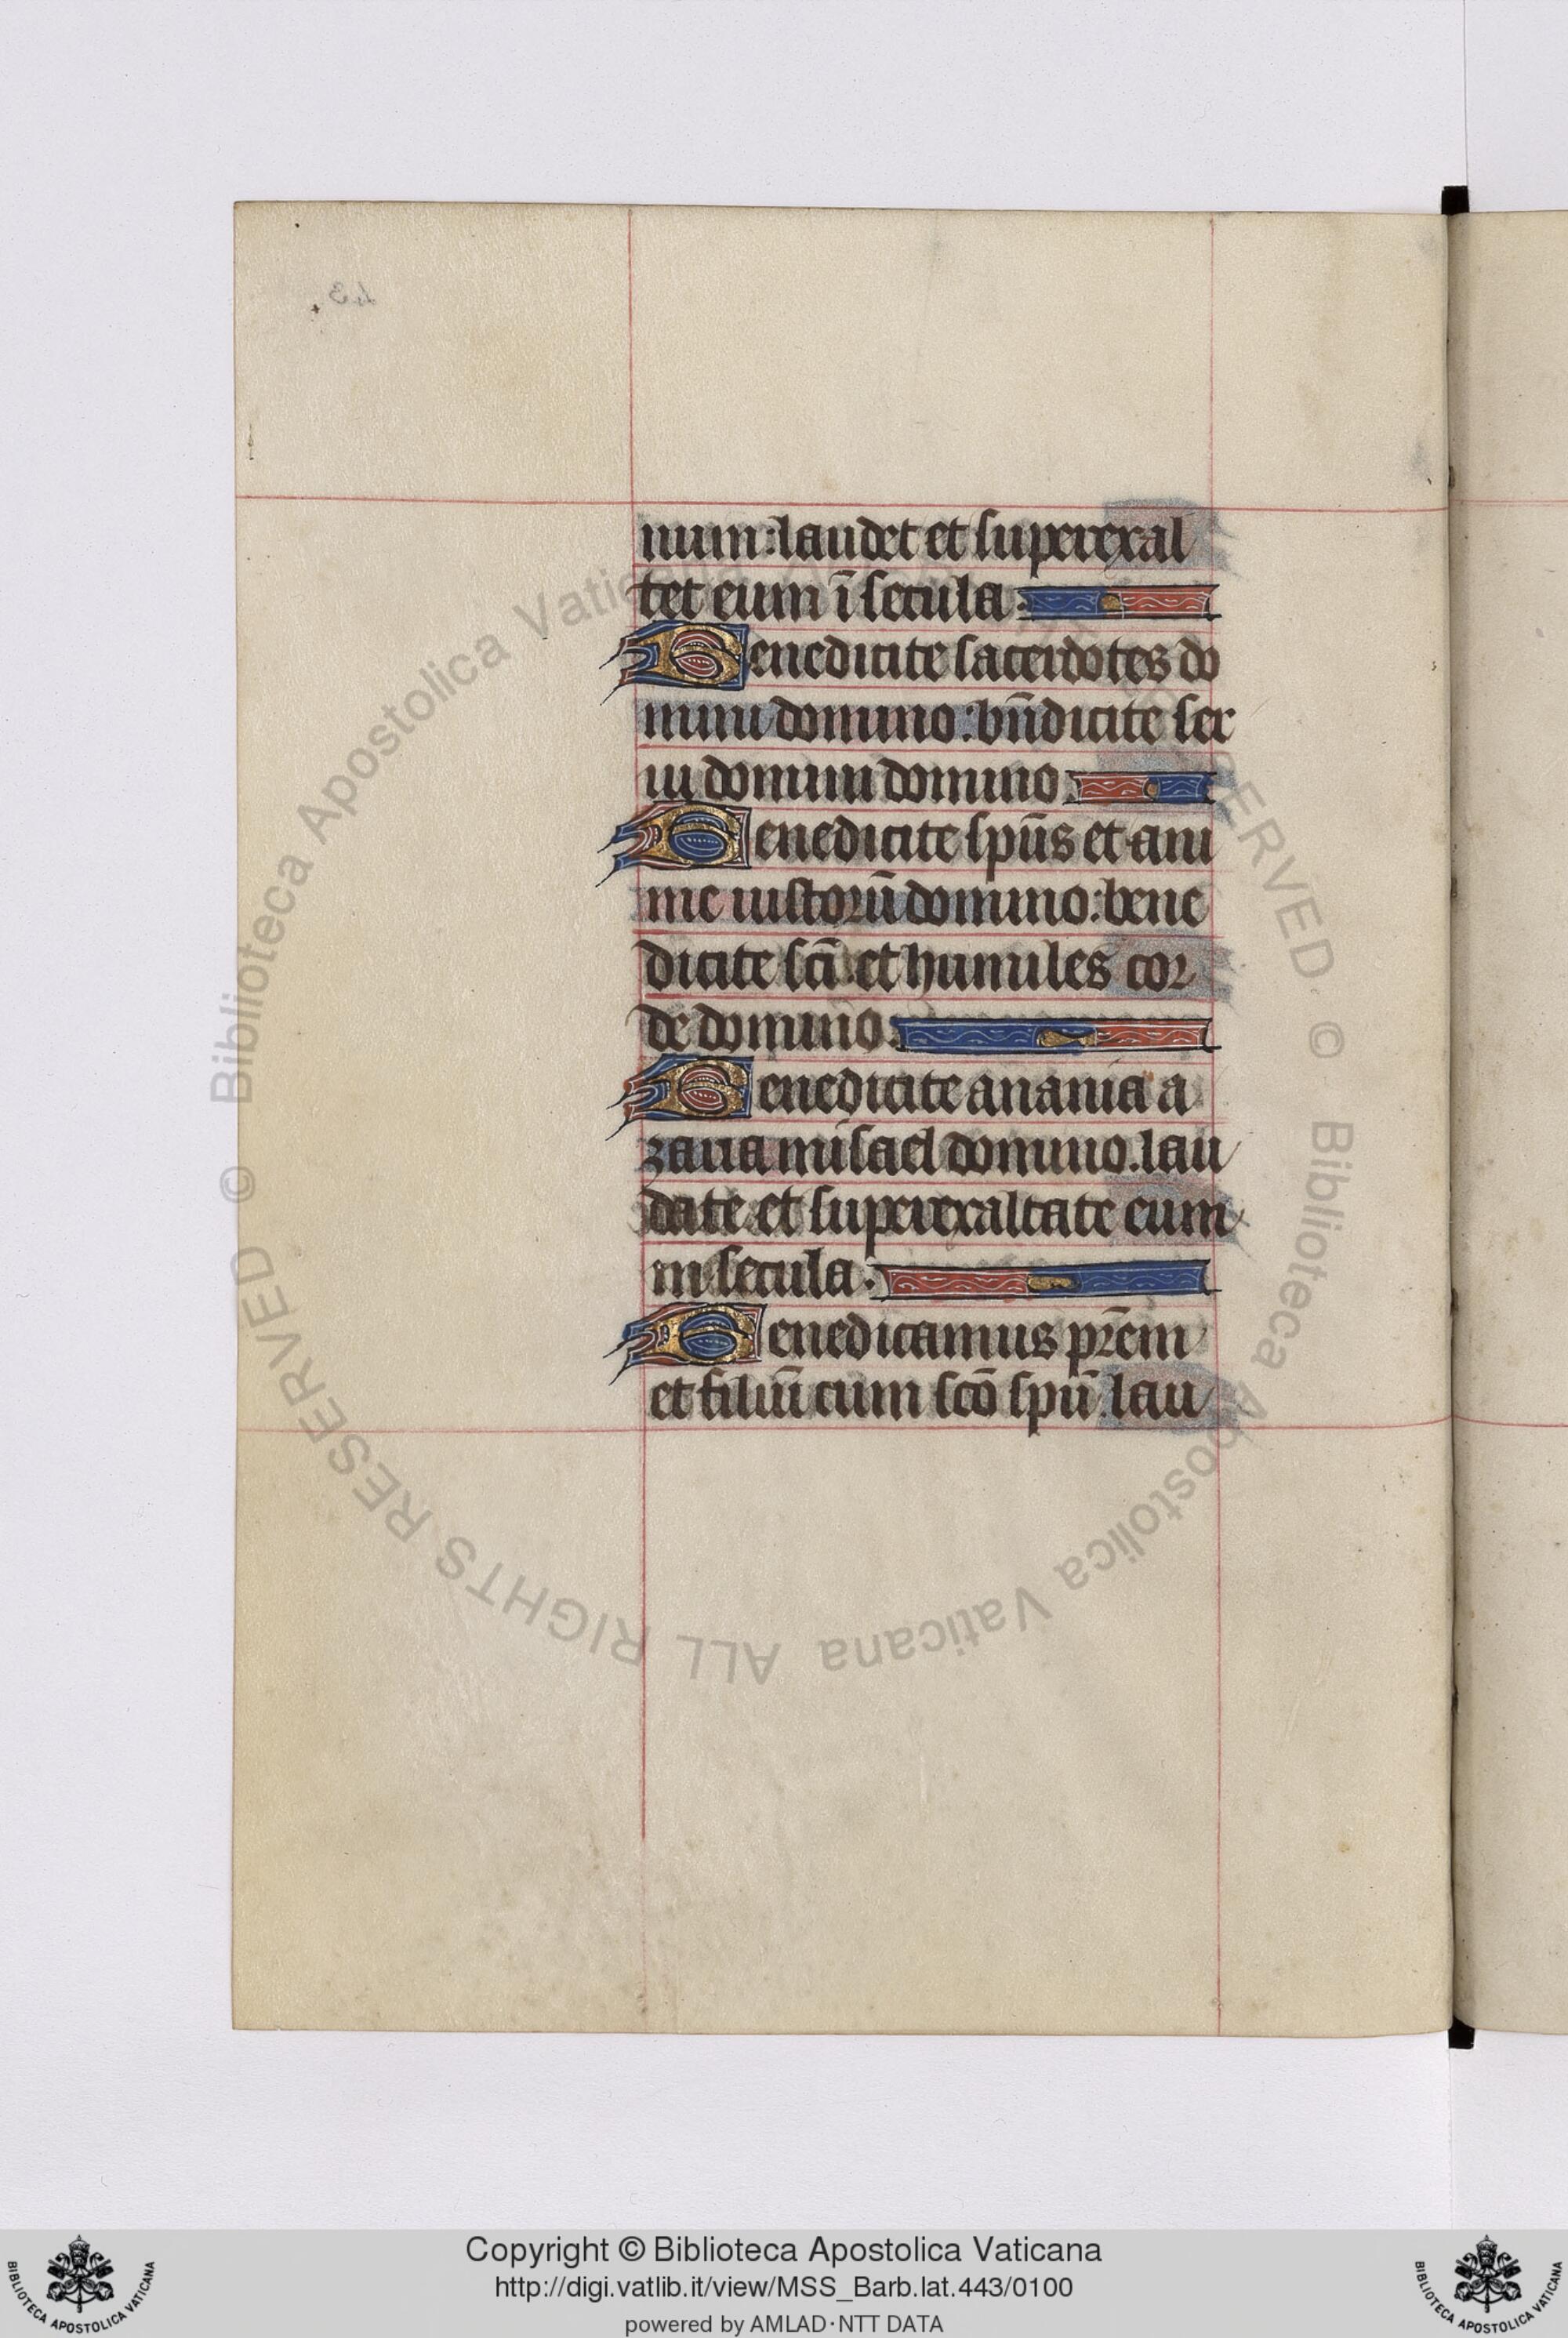 num: laudet et superexal
tet eum ī secula:
Benedicite sacerdotes do
mini domino: bn̄dicite ser
ui domini domino.
Benedicite spūs et ani
me iustorū domino: bene
dicite scī et humiles cor
de domino.
Benedicite anania a
zaria misael domino. lau
date et superexaltate eum
in secula.
Benedicamus pr̄em
et filiū cum scō spū. lau
Copyright © Biblioteca Apostolica Vaticana
http://digi.vatlib.it/view/MSS_Barb.lat.443/0100
powered by AMLAD·NTT DATA
BIBLIOTECA APOSTOLICA VATICANA
BIBLIOTECA APOSTOLICA VATICANA
© Biblioteca Apostolica Vaticana ALL RIGHTS RESERVED
© Biblioteca Apostolica Vaticana ALL RIGHTS RESERVED